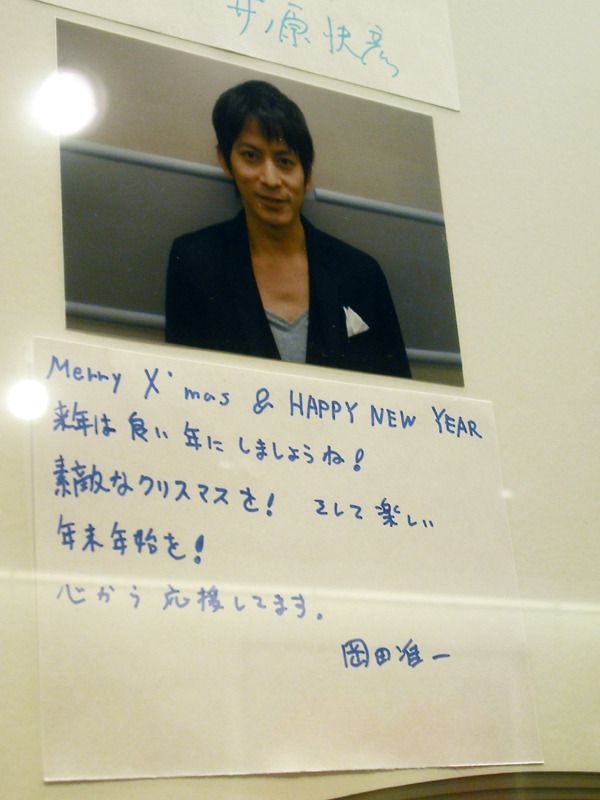 井ノ原快彦
Merry X'mas & HAPPY NEW YEAR
来年は良い年にしましょうね!
素敵なクリスマスを! そして楽しい
年末年始を!
心から応援してます。
岡田准一